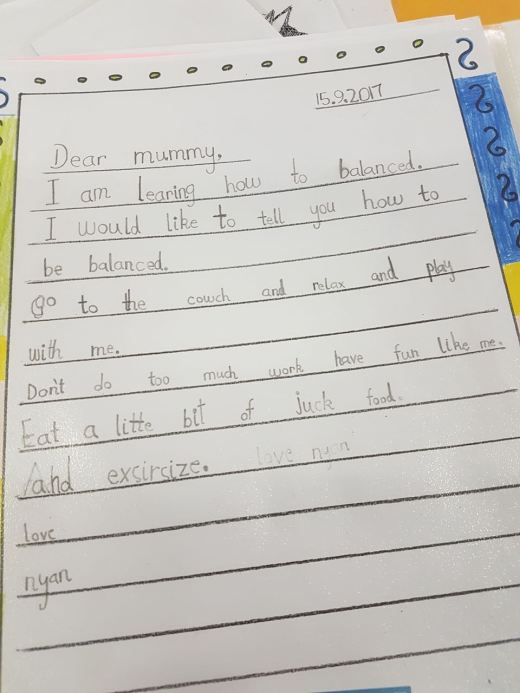 15.9.2017
Dear mummy,
I am learing how to balanced.
I would like to tell you how to
be balanced.
go to the cowch and relax and play
with me.
Don't do too much work have fun like me.
Eat a litte bit of juck food.
And exsirsize. love nyan
love
nyan